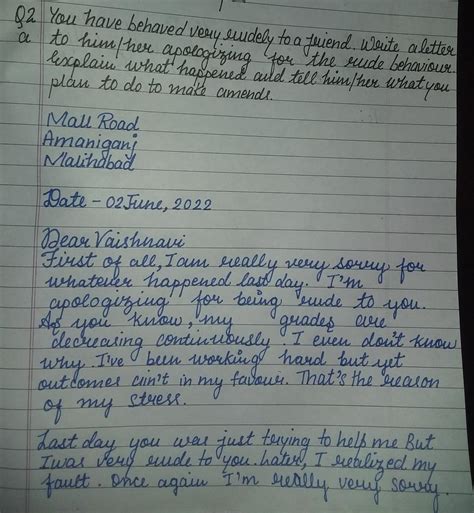 Q2 You have behaved very rudely to a friend. Write a letter
a to him/her apologizing for the rude behaviour.
Explain what happened and tell him/her what you
plan to do to make amends.
Mall Road
Amaniganj
Malihabad
Date - 02 June, 2022
Dear Vaishnavi
First of all, I am really very sorry for
whatever happened last day. I'm
apologizing for being rude to you.
As you know, my grades are
decreasing continuously. I even don't know
why. I've been working hard but yet
outcomes ain't in my favour. That's the reason
of my stress.
Last day you was just trying to help me But
I was very rude to you. Later, I realized my
fault. Once again I'm really very sorry.